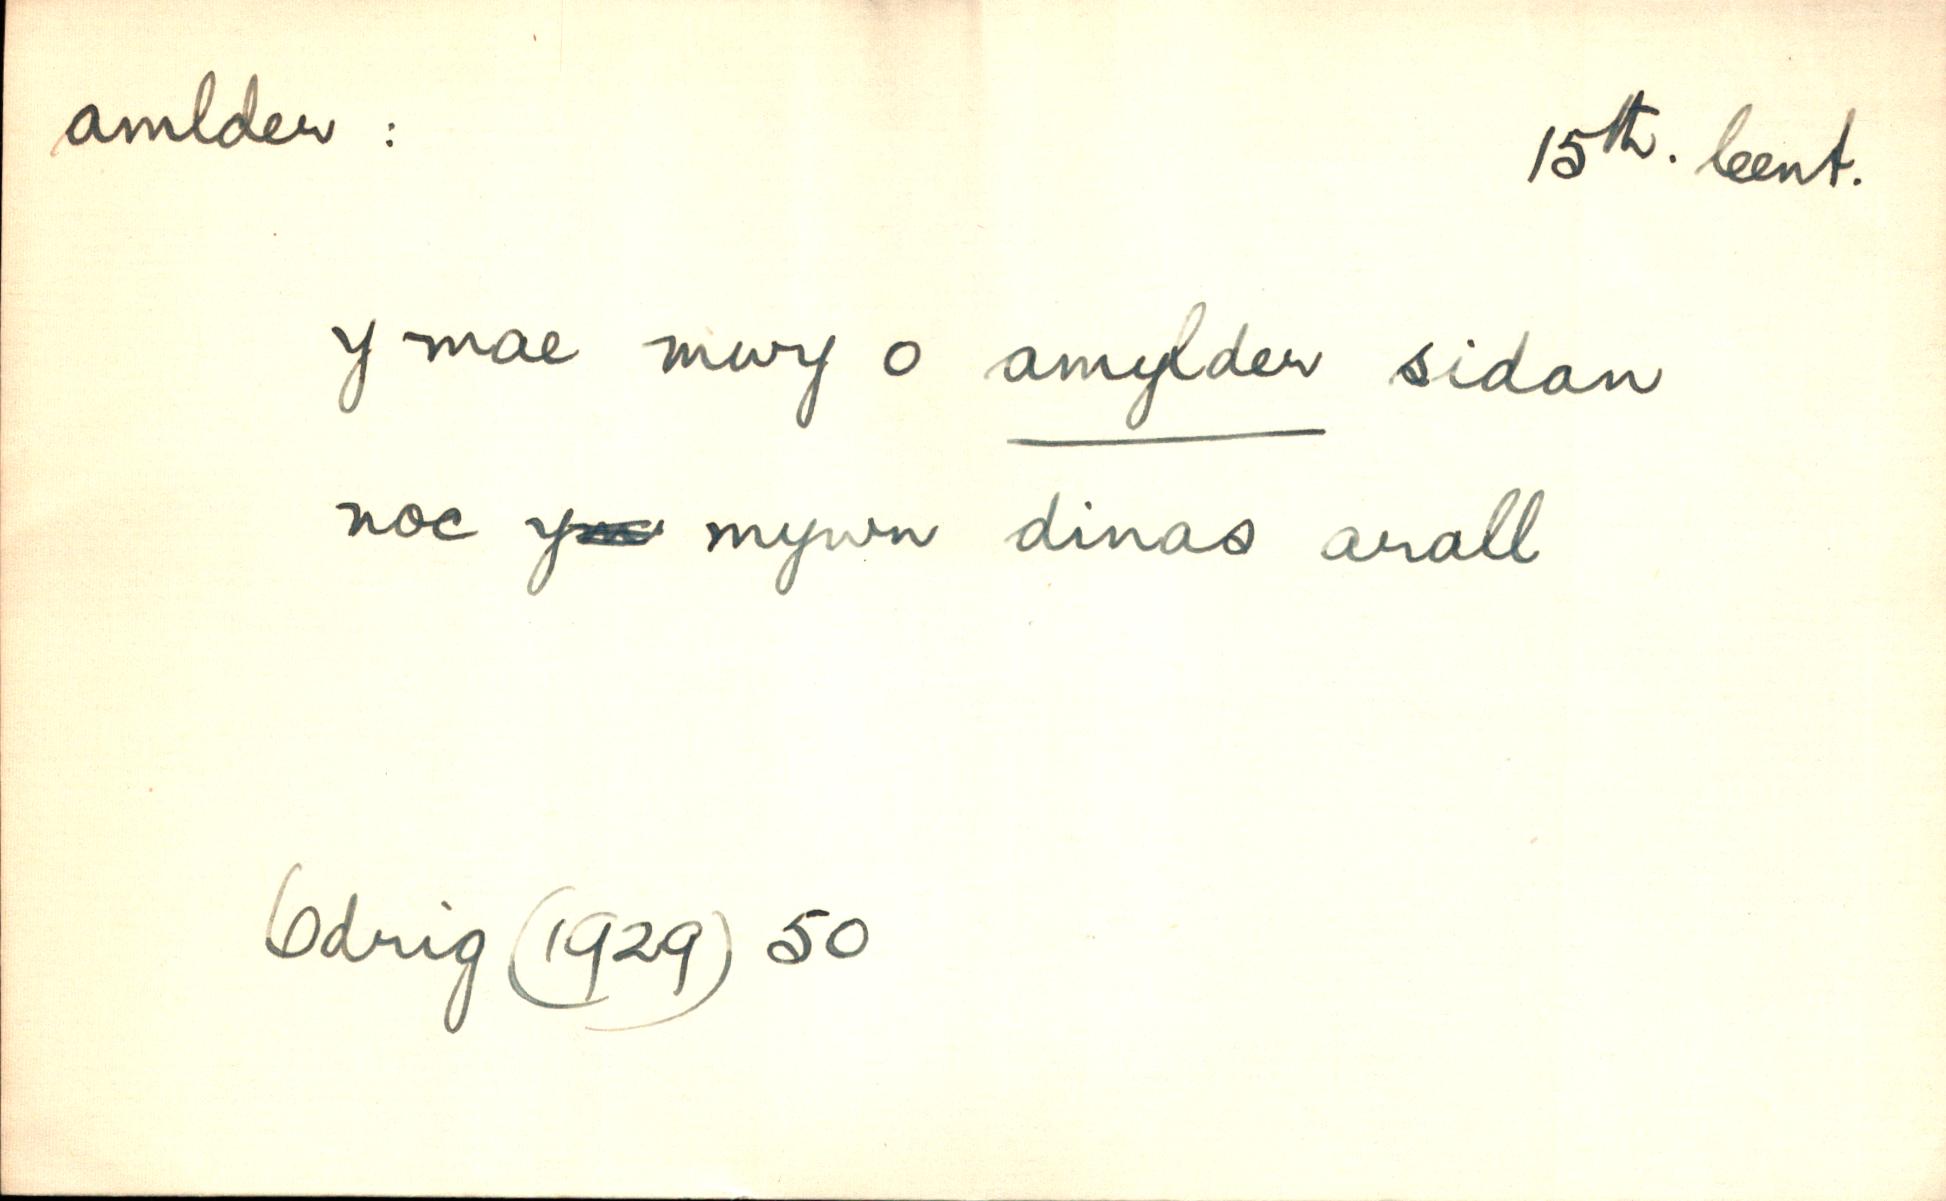 amlder :
15th. Cent.
y mae mwy o amylder sidan
noc y mywn dinas arall
Odrig (1929) 50